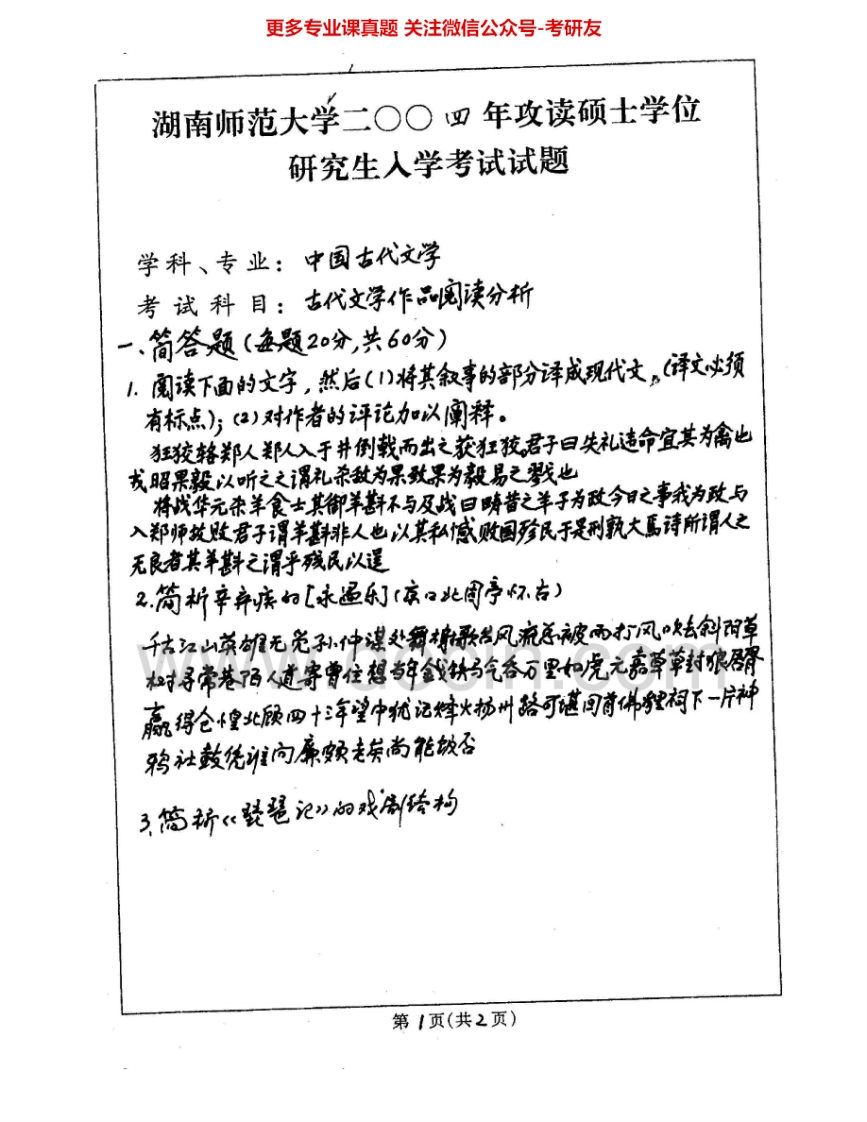 更多专业课真题 关注微信公众号-考研友
湖南师范大学二〇〇四年攻读硕士学位
研究生入学考试试题
学科、专业：中国古代文学
考试科目：古代文学作品阅读分析
一、简答题（每题20分，共60分）
1. 阅读下面的文字，然后(1)将其叙事的部分译成现代文。（译文必须
有标点）；(2)对作者的评论加以阐释。
狂狡辂郑人郑人入于井倒戟而出之获狂狡。君子曰失礼违命宜其为禽也
戎昭果毅以听之之谓礼杀敌为果致果为毅易之戮也
将战华元杀羊食士其御羊斟不与及战曰畴昔之羊子为政今日之事我为政与
入郑师故败君子谓羊斟非人也以其私憾败国殄民于是刑孰大焉诗所谓人之
无良者其羊斟之谓乎残民以逞
2. 简析辛弃疾的[永遇乐]（京口北固亭怀古）
千古江山英雄无觅孙仲谋处舞榭歌台风流总被雨打风吹去斜阳草
树寻常巷陌人道寄曾住想当年金戈铁马气吞万里如虎元嘉草草封狼居胥
赢得仓惶北顾四十三年望中犹记烽火扬州路可堪回首佛狸祠下一片神
鸦社鼓凭谁问廉颇老矣尚能饭否
3. 简析《琵琶记》的戏剧结构
www.docin.com
第1页(共2页)